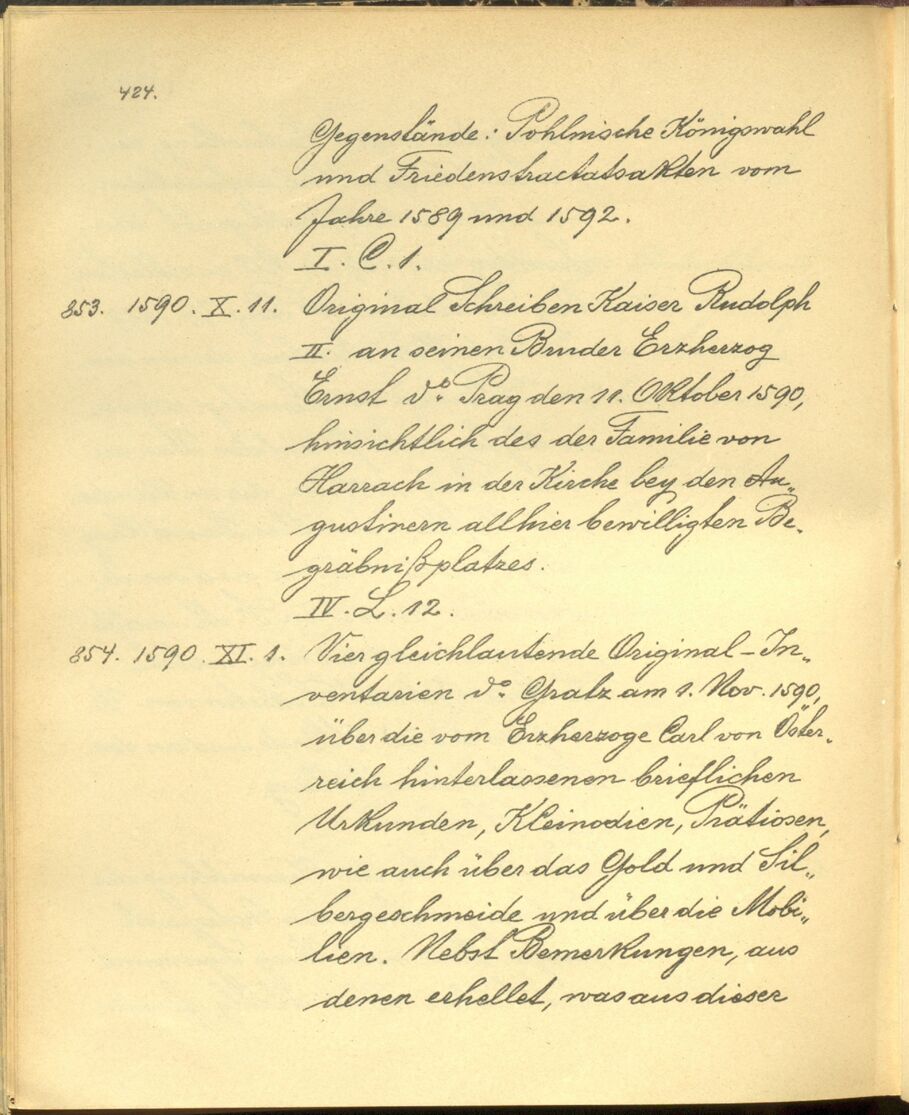 424.
Gegenstände: Pohlnische Königswahl
und Friedenstractatsakten vom
Jahre 1589 und 1592.
I. C. 1.
853. 1590. X. 11. Original Schreiben Kaiser Rudolph
II. an seinen Bruder Erzherzog
Ernst do. Prag den 11. Oktober 1590,
hinsichtlich des der Familie von
Harrach in der Kirche bey den Au„
gustinern allhier bewilligten Be„
gräbnißplatzes.
IV. L. 12.
854. 1590. XI. 1. Vier gleichlautende Original-In„
ventarien do. Gratz am 1. Nov. 1590,
über die vom Erzherzoge Carl von Öster„
reich hinterlassenen brieflichen
Urkunden, Kleinodien, Prätiosen,
wie auch über das Gold und Sil„
bergeschmeide und über die Mobi„
lien. Nebst Bemerkungen, aus
denen erhellet, was aus dieser